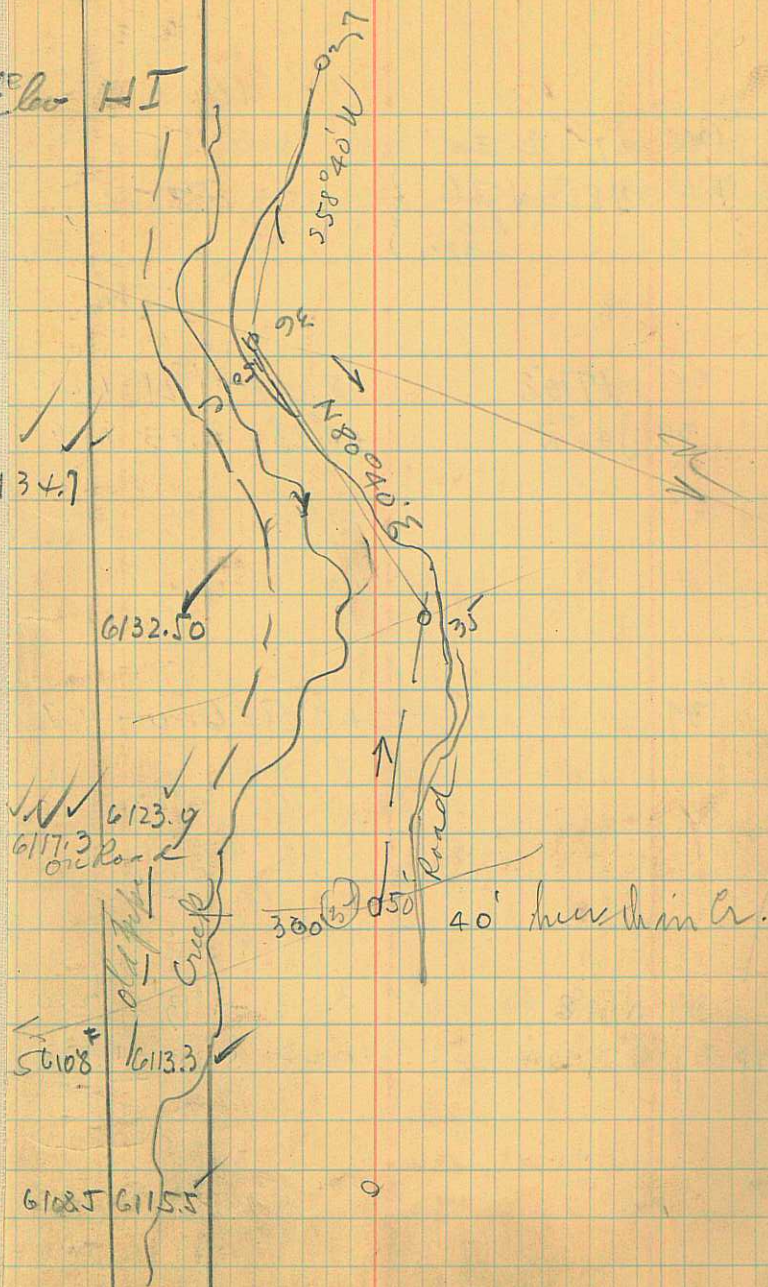 Elev HI
37
S58°40'W
36
N80°40'E
134.7
6132.50
35
6123.9
6117.3
on Road
Road
old pipe
Creek
300
50'
40'
6108
6113.3
6108.5 6115.5